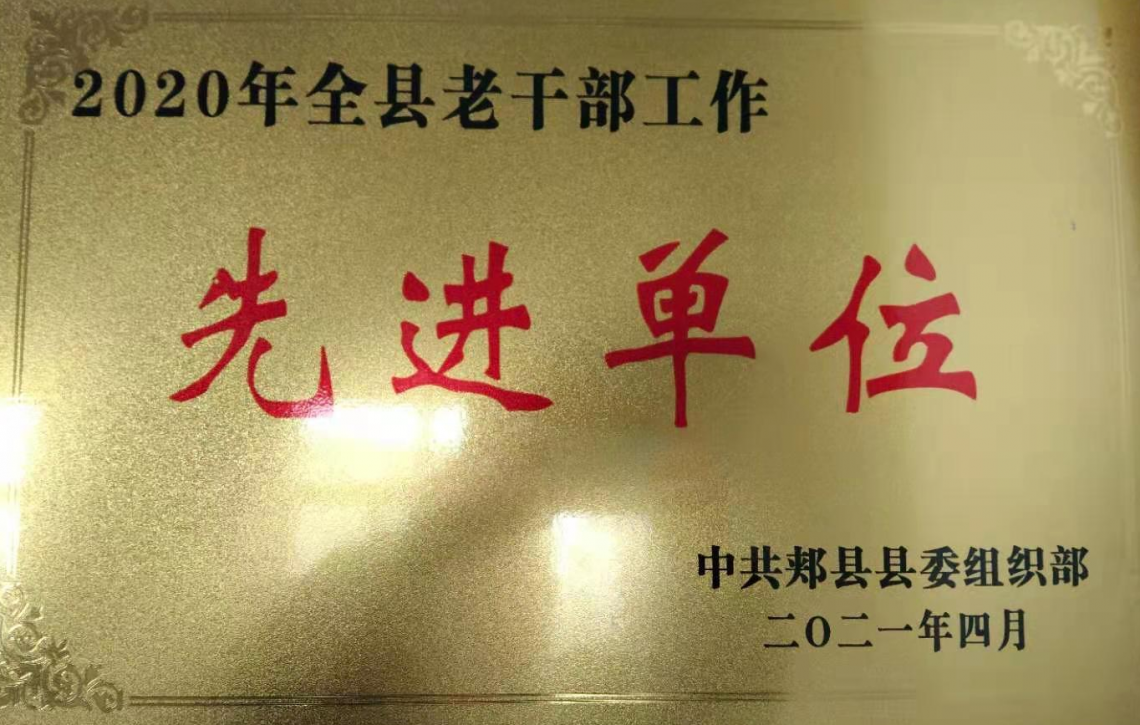 2020年全县老干部工作
先进单位
中共郏县县委组织部
二〇二一年四月